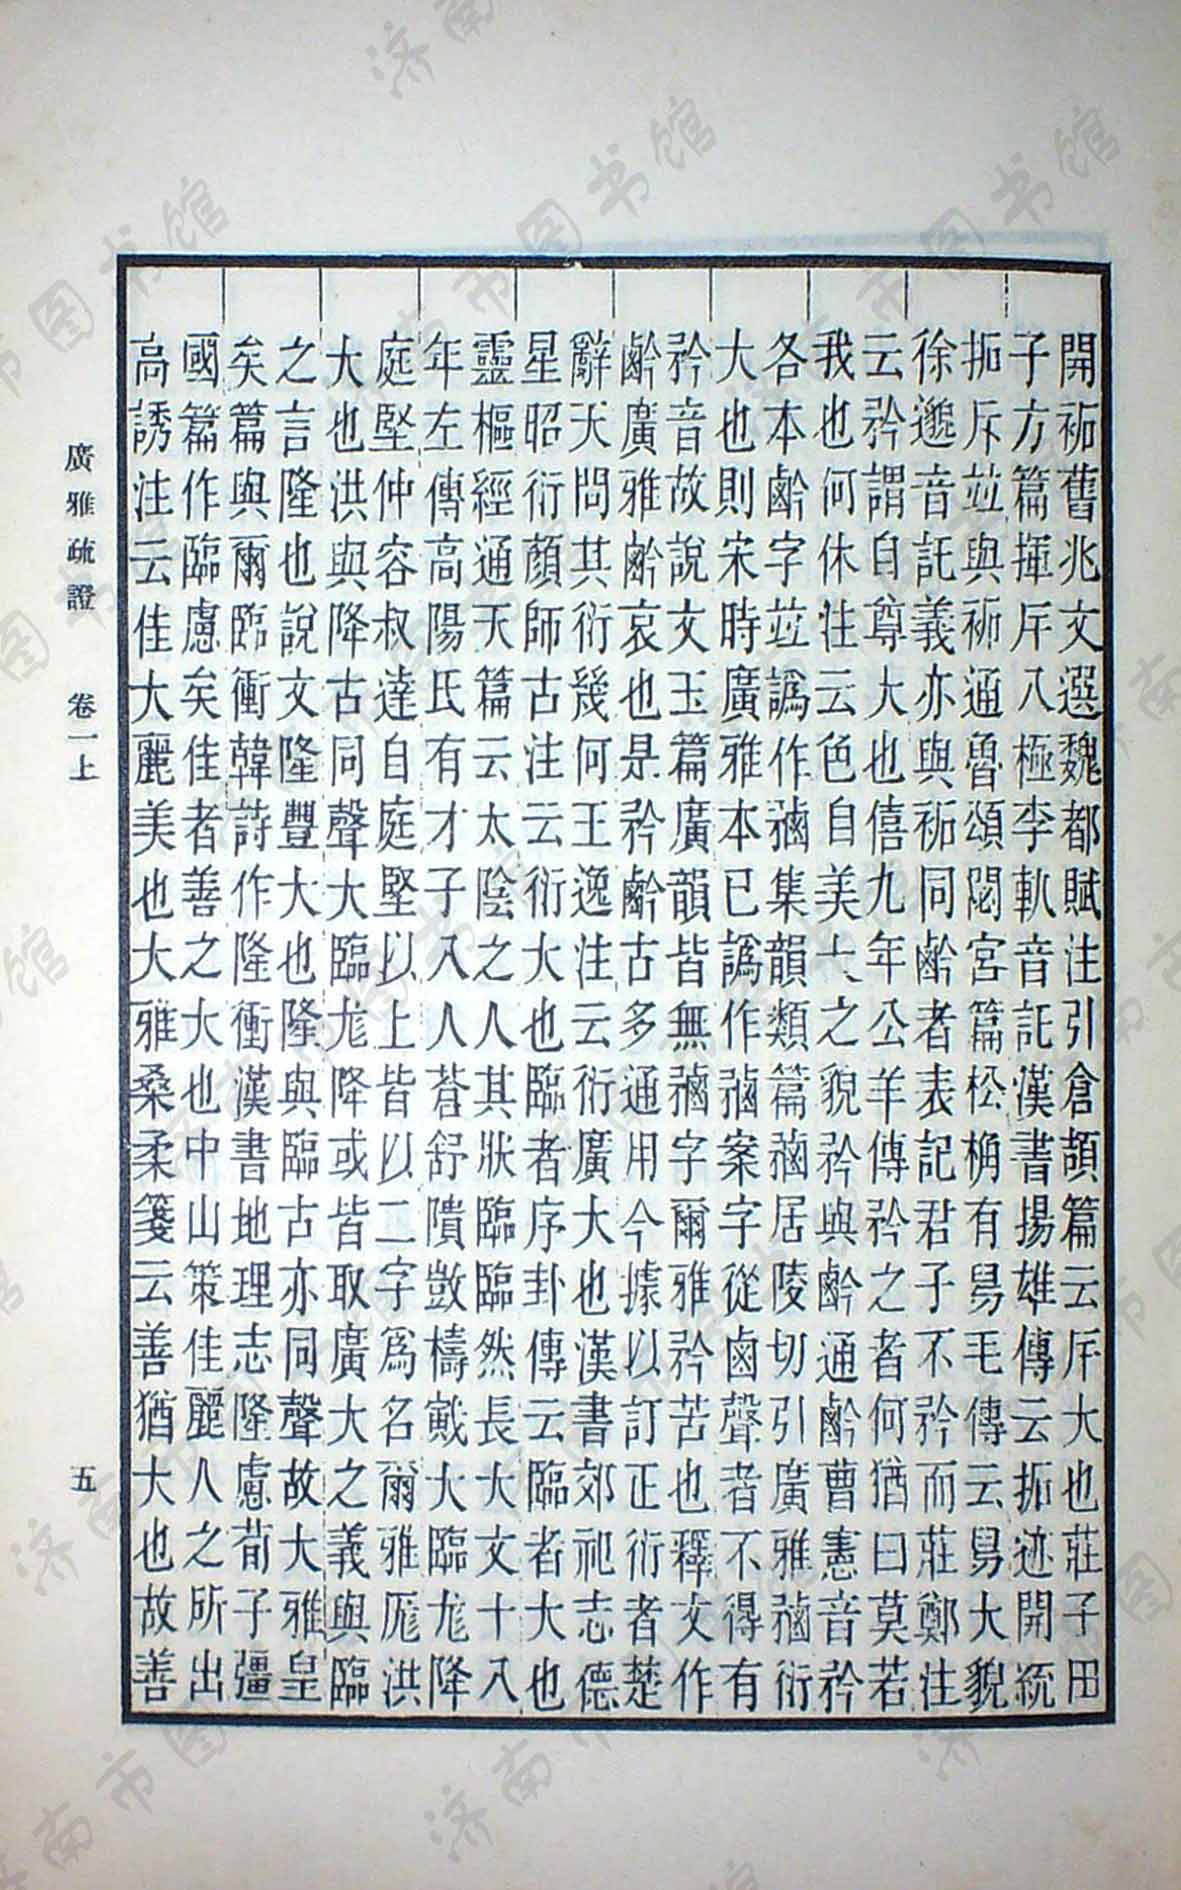 開袥舊兆文選魏都賦注引倉頡篇云斥大也莊子田
子方篇揮斥八極李軌音託漢書揚雄傳云拓迹開統
拓斥竝與袥通魯頌閟宮篇松桷有舃毛傳云舃大貌
徐邈音託義亦與袥同者表記君子不矜而莊鄭注
云矜謂自尊大也僖九年公羊傳矜之者何猶曰莫若
我也何休注云色自美大之貌矜與通曹憲音矜
各本字竝譌作集韻類篇居陵切引廣雅衍
大也則宋時廣雅本已譌作案字從鹵聲者不得有
矜音故說文玉篇廣韻皆無字爾雅矜苦也釋文作
廣雅哀也是矜古多通用今據以訂正衍者楚
辭天問其衍幾何王逸注云衍廣大也漢書郊祀志德
星昭衍顏師古注云衍大也臨者序卦傳云臨者大也
靈樞經通天篇云太陰之人其狀臨臨然長大文十八
年左傳高陽氏有才子八人蒼舒隤敳檮戭大臨尨降
庭堅仲容叔達自庭堅以上皆以二字爲名爾雅厖洪
大也洪與降古同聲大臨尨降或皆取廣大之義與臨
之言隆也說文隆豐大也隆與臨古亦同聲故大雅皇
矣篇與爾臨衝韓詩作隆衝漢書地理志隆慮荀子彊
國篇作臨慮矣佳者善之大也中山策佳麗人之所出
高誘注云佳大麗美也大雅桑柔箋云善猶大也故善
廣雅疏證 卷一上 五
济南市图书馆